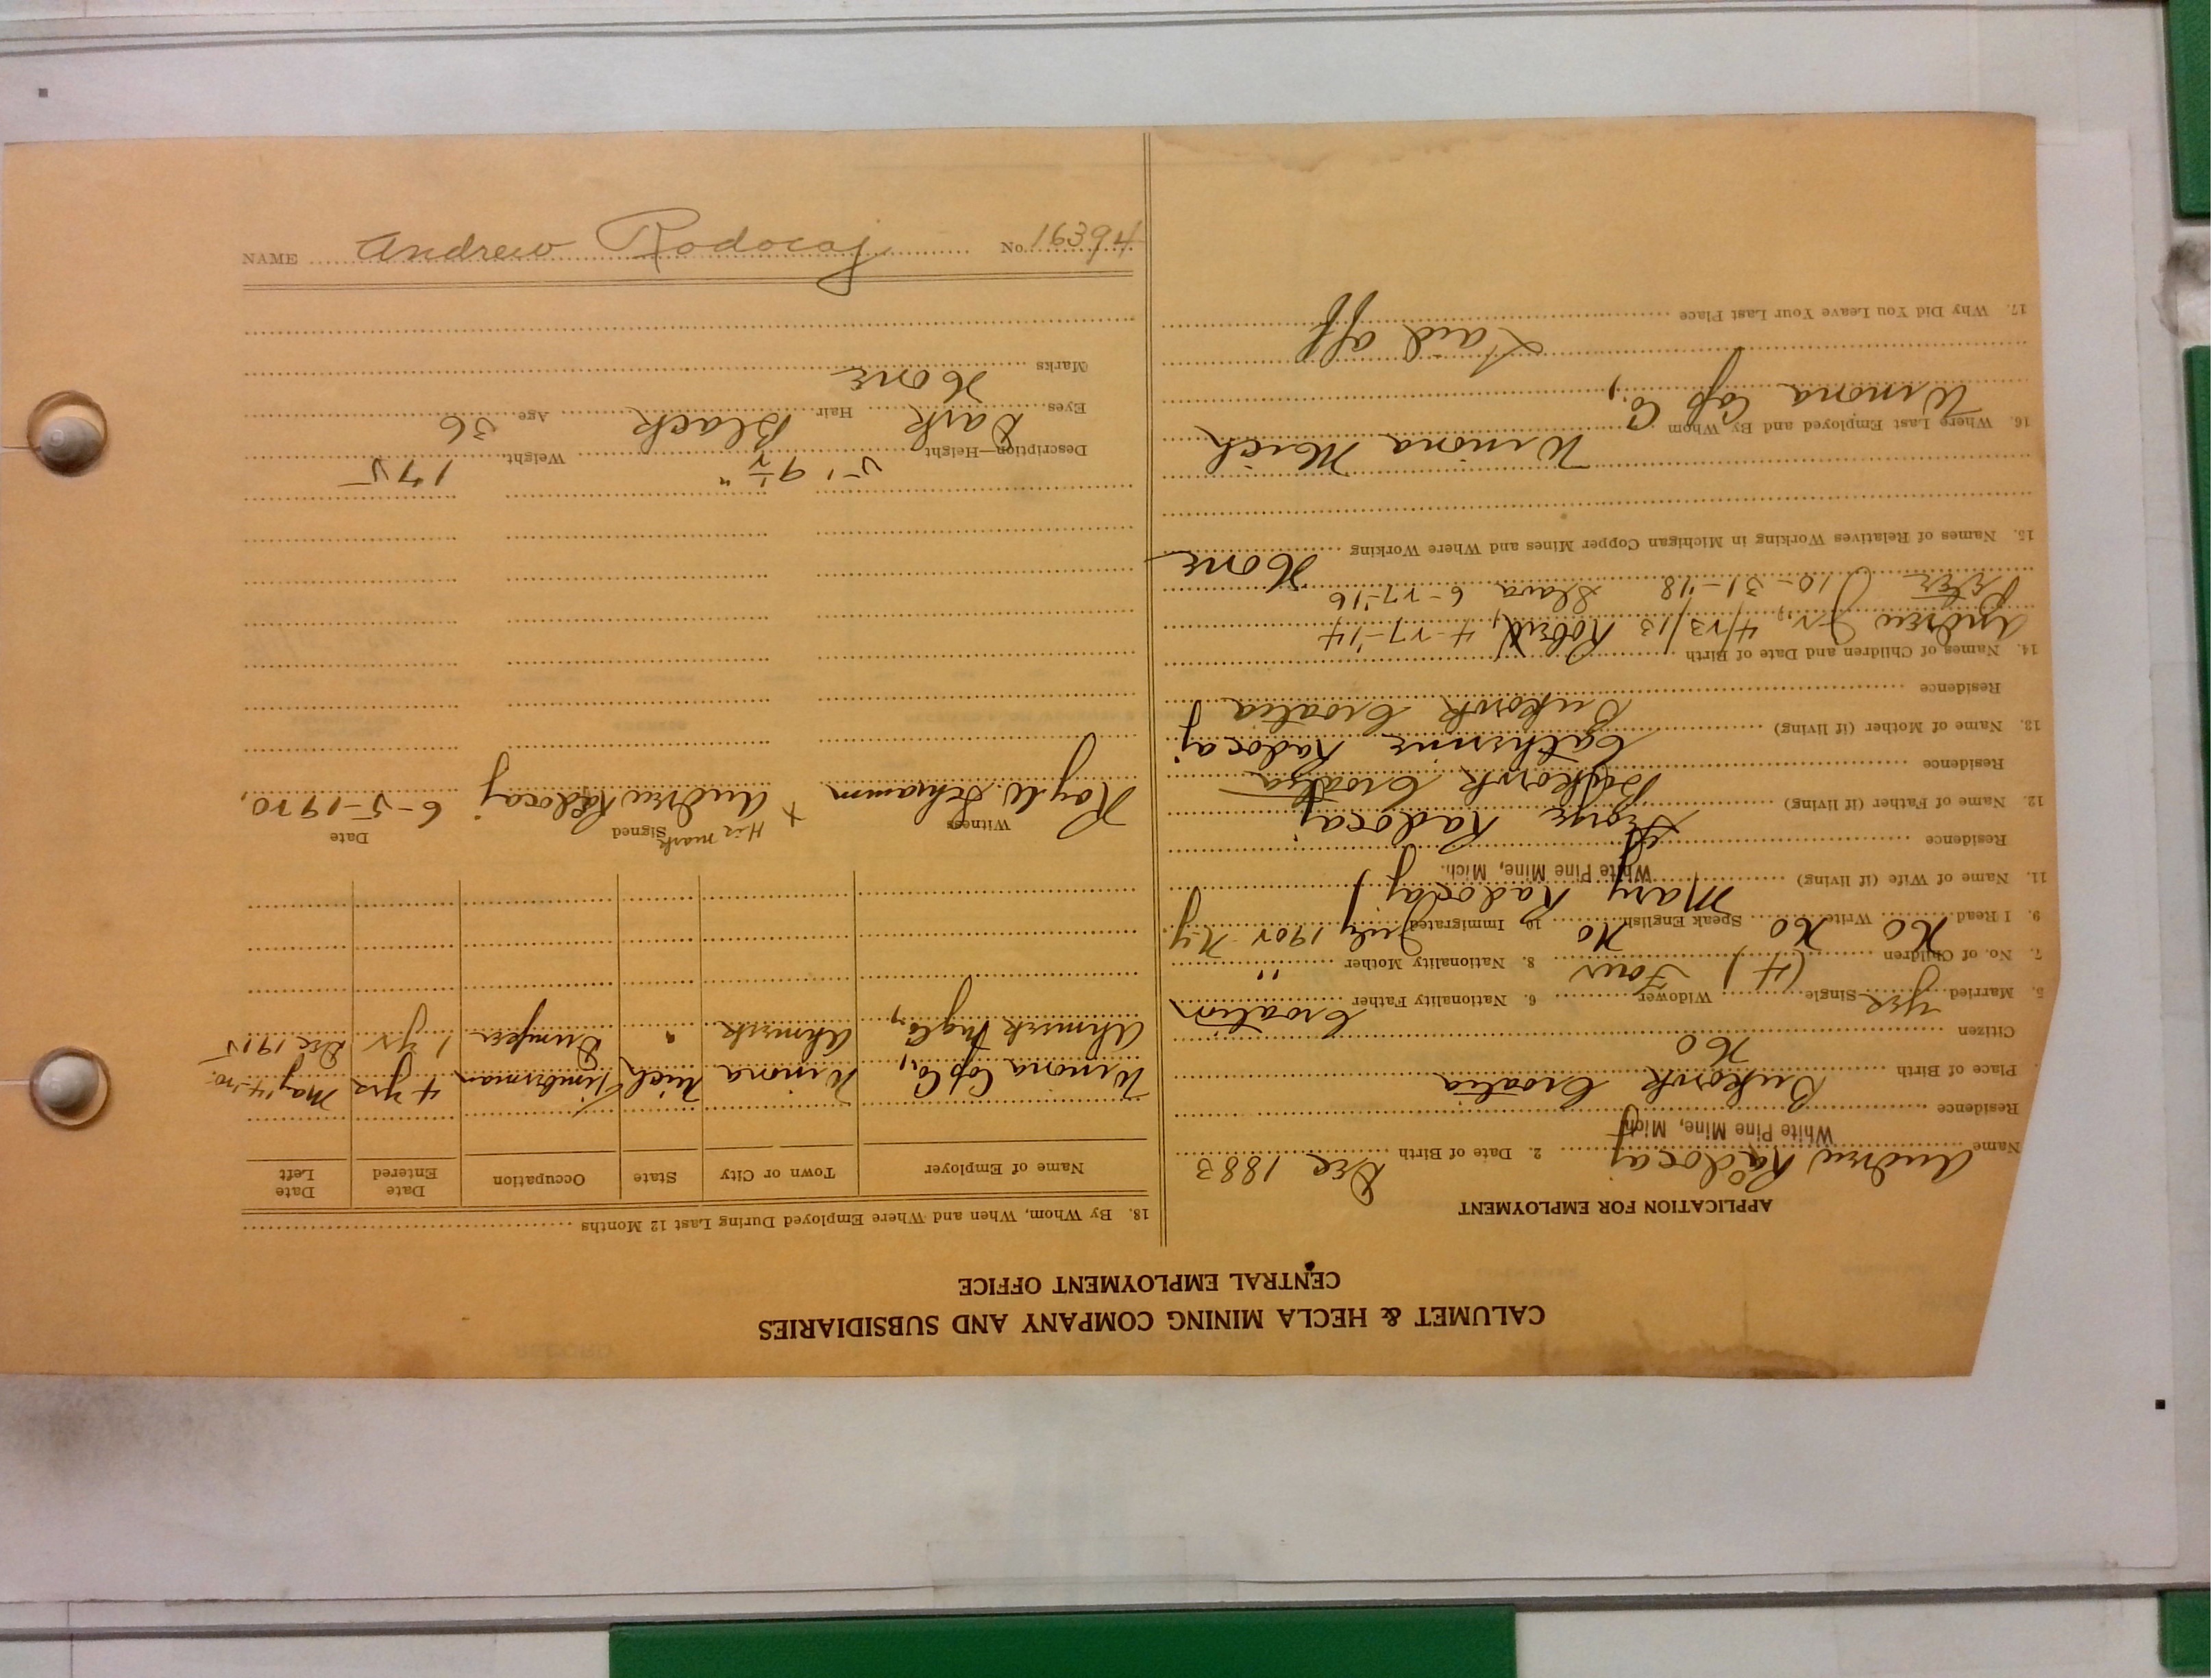 CALUMET & HECLA MINING COMPANY AND SUBSIDIARIES
CENTRAL EMPLOYMENT OFFICE
APPLICATION FOR EMPLOYMENT
Name Andrew Radocaj 2. Date of Birth Dec 1883
White Pine Mine, Mich
Residence
Place of Birth Croatia
Citizen No
5. Married Yes Single Widower 6. Nationality Father Croatian
7. No. of Children (4) Four 8. Nationality Mother "
9. I Read No Write No Speak English No 10. Immigrated July 1902 N.Y.
11. Name of Wife (if living) Mary Radocaj
White Pine Mine, Mich.
Residence
12. Name of Father (if living) George Radocaj
Residence Croatia
13. Name of Mother (if living) Catherine Radocaj
Residence Croatia
14. Names of Children and Date of Birth
Andrew Jr., 4/23/13 Robert, 4-27-14
Peter 10-31-18 Slava 6-27-16
15. Names of Relatives Working in Michigan Copper Mines and Where Working None
16. Where Last Employed and By Whom Winona Mich
Winona Cop Co.,
17. Why Did You Leave Your Last Place Laid off
18. By Whom, When and Where Employed During Last 12 Months
Name of Employer Town or City State Occupation Date Entered Date Left
Winona Cop Co., Winona Mich Timberman 4 yrs May 4-20.
Ahmeek Mg Co., Ahmeek " Dumper 1 yr Dec 1915
Witness Signed Date
His mark
Roy W. Schramm x Andrew Radocaj 6-5-1920.
Description—Height 5' 9 1/2" Weight 175
Eyes Dark Hair Black Age 36
Marks None
NAME Andrew Rodocaj No. 16394